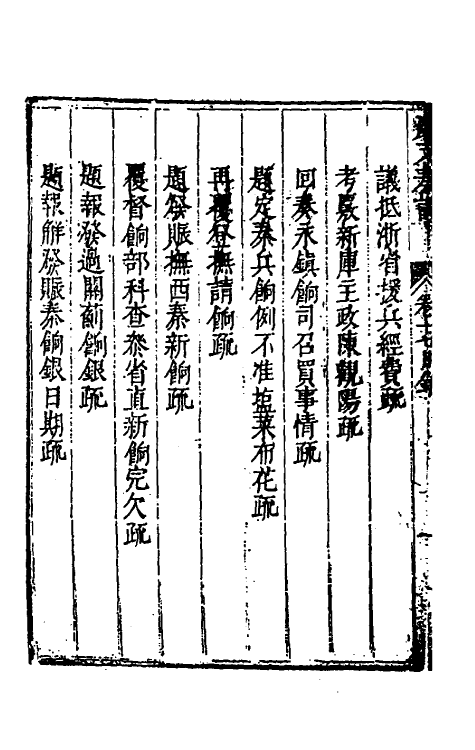 議抵浙省援兵經費疏
考覈新庫主政陳觀陽疏
回奏永鎮餉司召買事情疏
題定秦兵餉例不准塩菜布花疏
再覆登撫請餉疏
題發賑撫西秦新餉疏
覆督餉部科查叅省直新餉完欠疏
題報發過關薊餉銀疏
題報解發賑秦餉銀日期疏